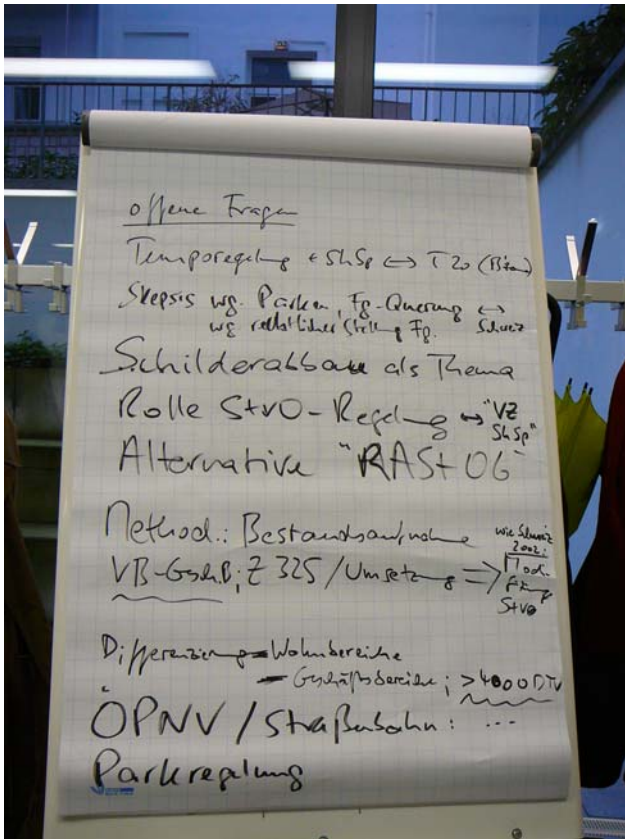 offene Fragen
Temporegelung + ShSp ↔ T20
Skepsis wg. Parken, Fg-Querung ↔ Schweiz
wg rechtlicher Stellung Fg.
Schilderabbau als Thema
Rolle StVO-Regelung ↔ "VZ ShSp"
Alternative "RASt 06"
Method.: Bestandsaufnahme
VB-GschB; Z 325 / Umsetzung ⇒
wie Schweiz
2002:
Modi-
fizierung
StVO
Differenzierung - Wohnbereiche
- Geschäftsbereiche; > 4000 DTV
ÖPNV / Straßenbahn: ...
Parkregelung